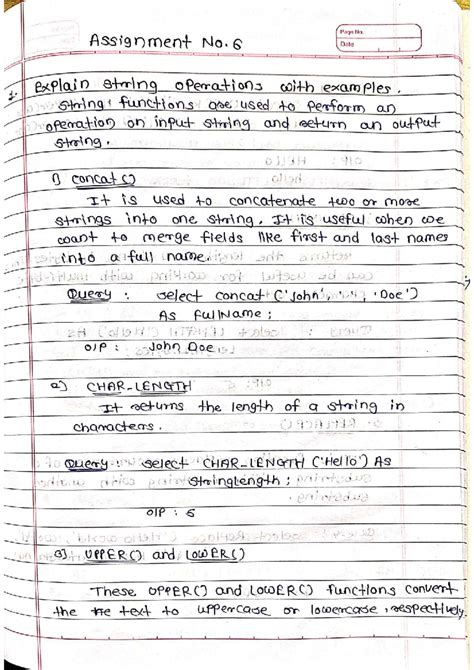 Assignment No. 6
Page No.
Date
1. Explain string operations with examples.
String functions are used to perform an
operation on input string and return an output
string.
1) concat()
It is used to concatenate two or more
strings into one string. It is useful when we
want to merge fields like first and last names
into a full name.
Query : select concat ('John', ' ', 'Doe')
As fullName;
O/P : John Doe
2) CHAR_LENGTH
It returns the length of a string in
characters.
Query : select CHAR_LENGTH ('Hello') As
StringLength ;
O/P : 5
3) UPPER() and LOWER()
These UPPER() and LOWER() functions convert
the text to uppercase or lowercase, respectively.